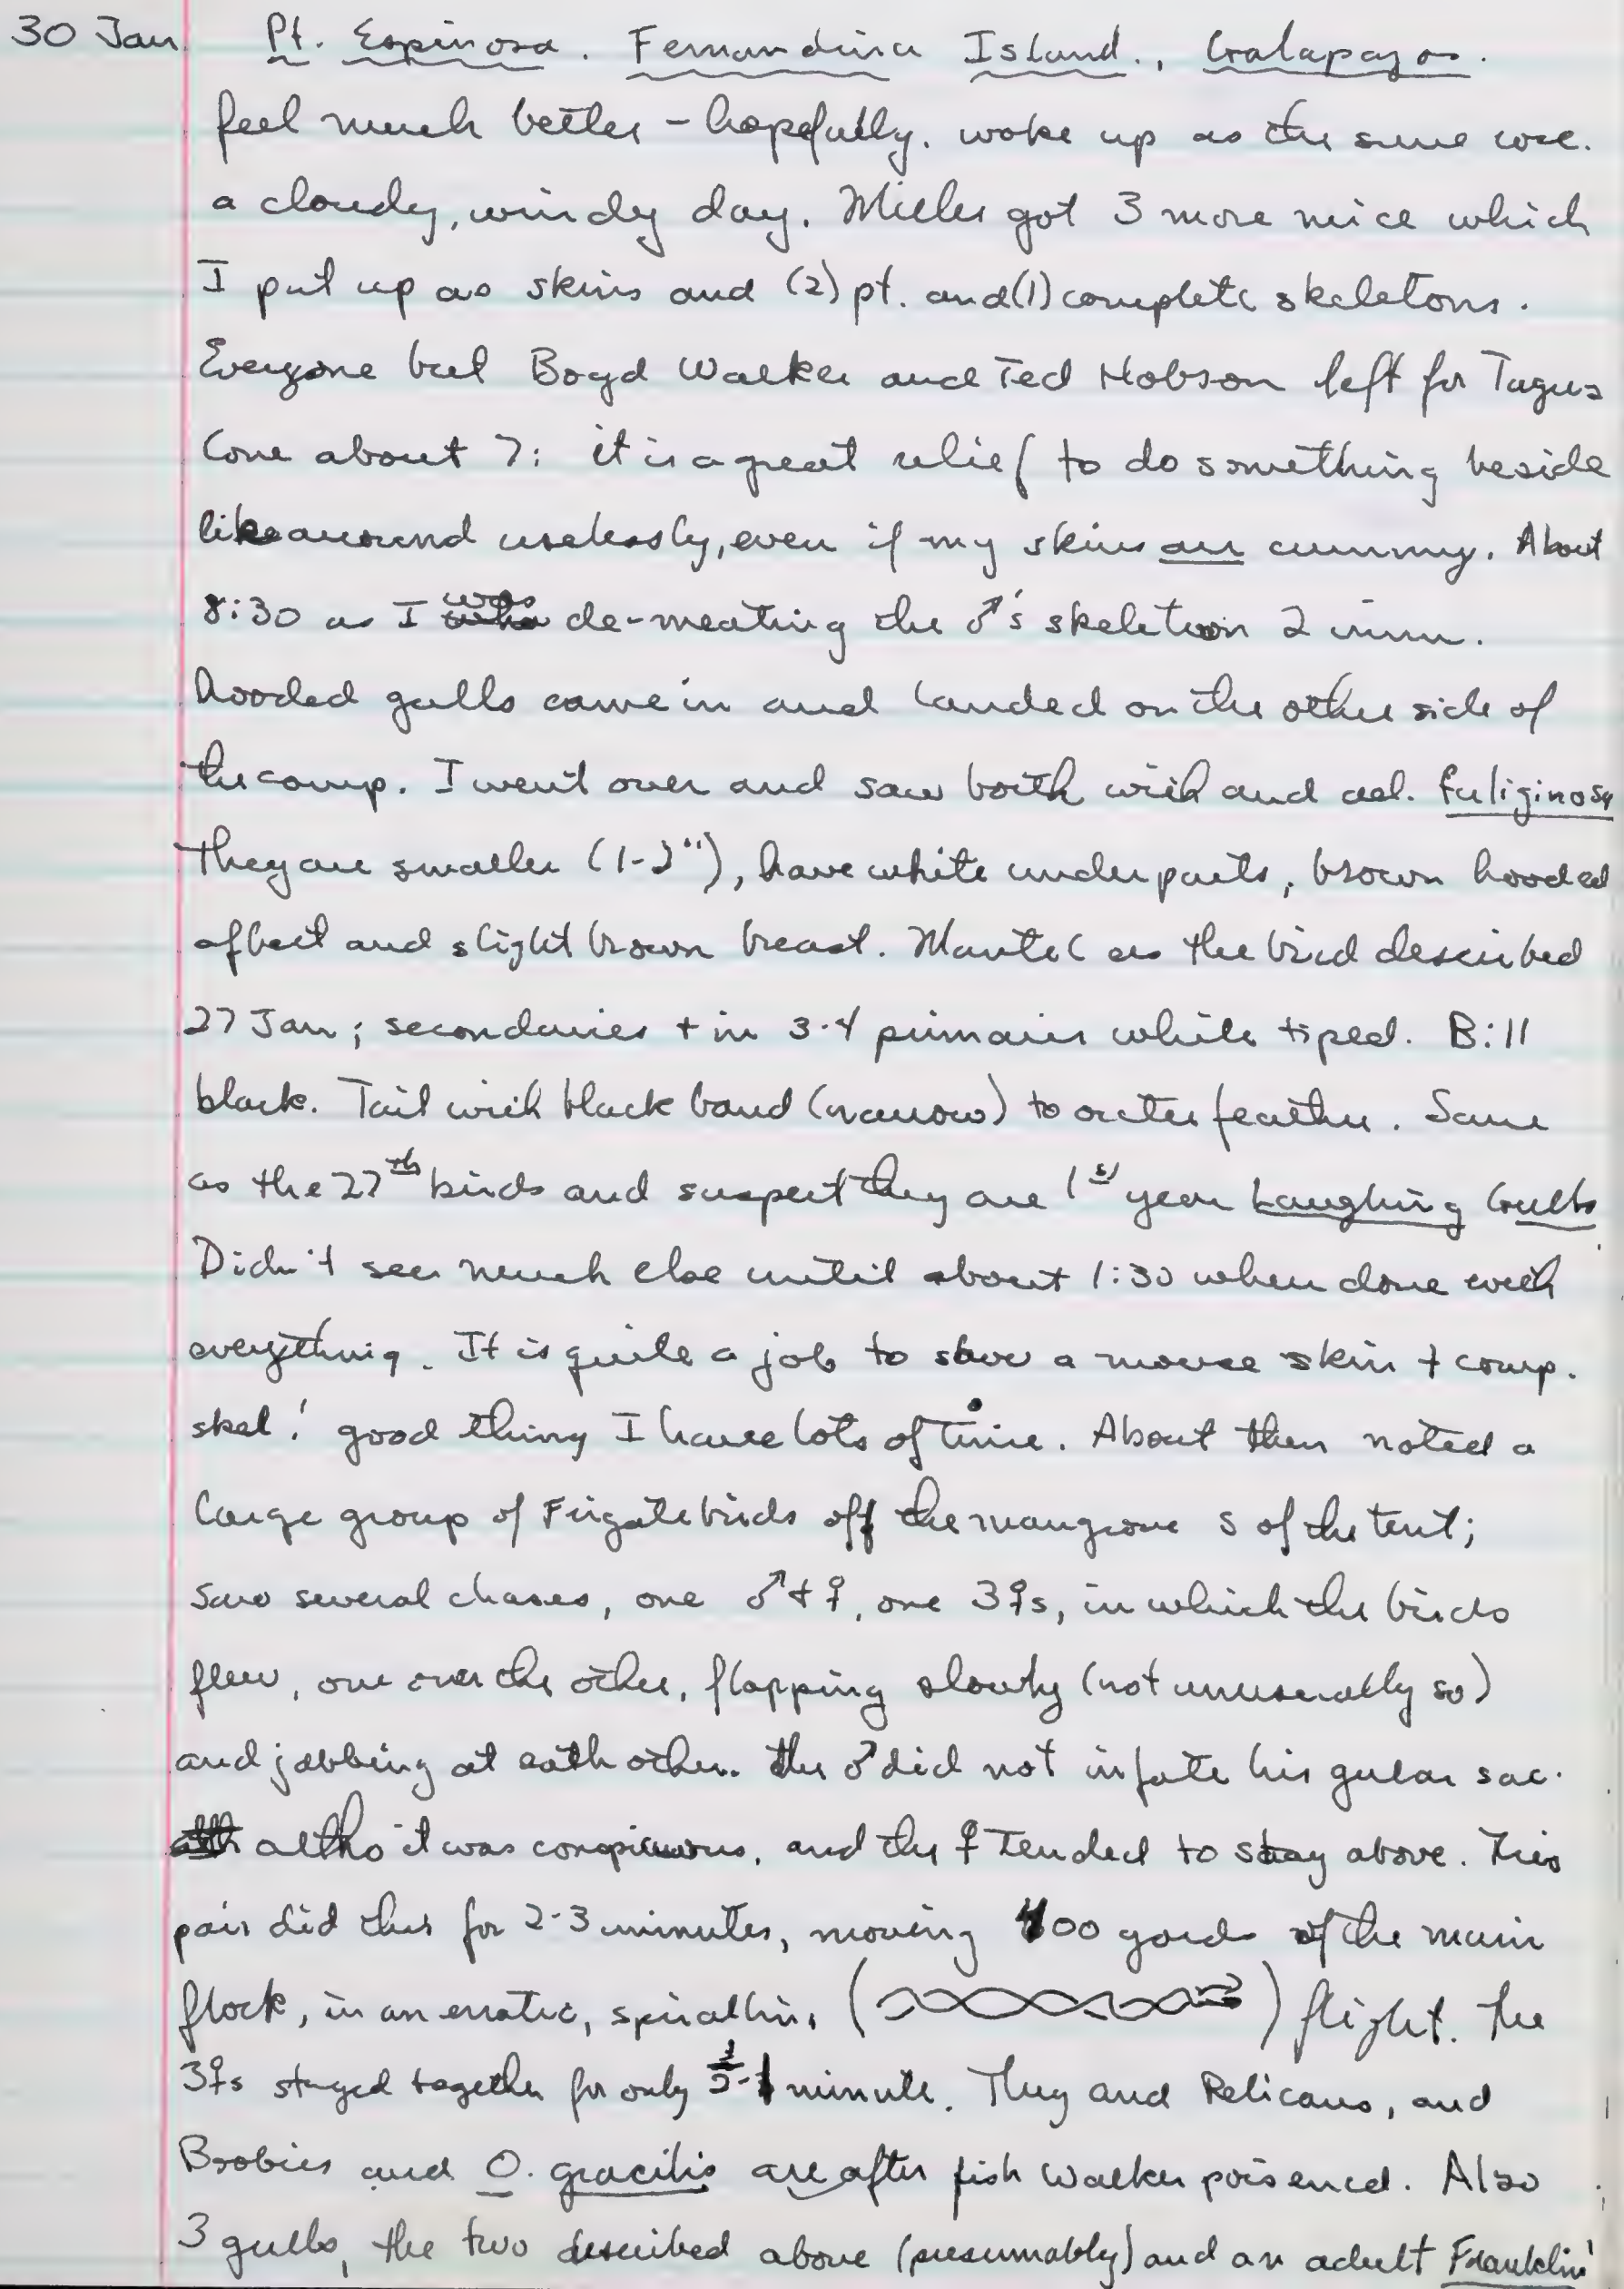 30 Jan Pt. Espinosa. Fernandina Island., Galapagos.
feel much better – hopefully. woke up as the sun rose.
a cloudy, windy day. Miller got 3 more mice which
I put up as skins and (2) pt. and (1) complete skeletons.
Everyone but Boyd Walker and Ted Hobson left for Tagus
Cove about 7: it is a great relief to do something beside
like around uselessly, even if my skins are crummy. About
8:30 as I was de-meating the ♂'s skeleton 2 imm.
hooded gulls came in and landed on the other side of
the camp. I went over and saw both with and ad. fuliginosa
They are smaller (1-2"), have white underparts, brown hooded
affect and slight brown breast. Mantel as the bird described
27 Jan; secondaries + in 3-4 primaries white tiped. Bill
black. Tail with black band (narrow) to outer feather. Same
as the 27th birds and suspect they are 1st year Laughing Gulls
Didn't see much else until about 1:30 when done with
everything. It is quite a job to save a mouse skin + comp.
skel! good thing I have lots of time. About then noted a
large group of Frigatebirds off the mangrove S of the tent;
saw several chases, one ♂ + ♀, one 3♀s, in which the birds
flew, one over the other, flapping slowly (not unusually so)
and jabbing at eath other. the ♂ did not infate his gular sac.
altho it was conspicuous, and the ♀ tended to stay above. This
pair did this for 2-3 minutes, moving 400 yards of the main
flock, in an erratic, spiralling ( ) flight. The
3♀s stayed together for only ½-1 minute. They and Pelicans, and
Boobies and O. gracilis are after fish Walker poisened. Also
3 gulls, the two described above (presumably) and an adult Franklin'